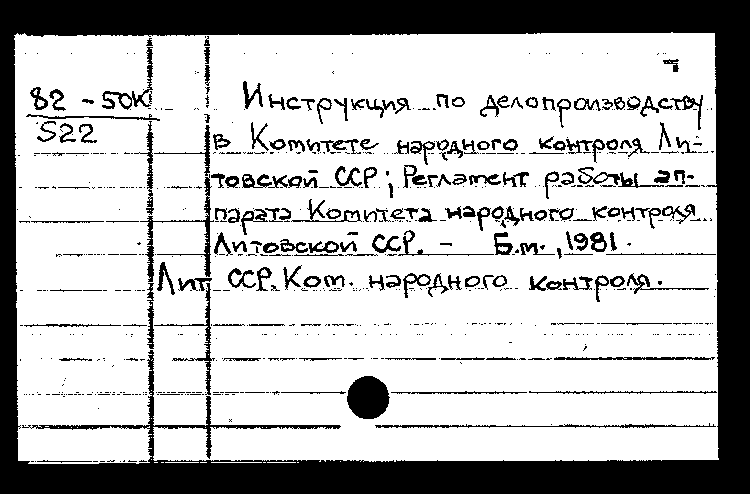 82 - 50K
522
Инструкция по делопроизводству
в Комитете народного контроля Ли-
товской ССР; Регламент работы ап-
парата Комитета народного контроля
Литовской ССР. - Б.м., 1981.
Лит ССР. Ком. народного контроля.